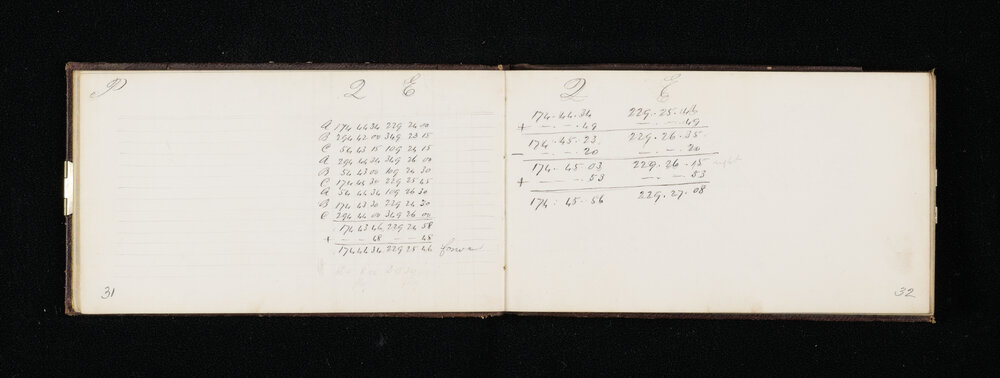 P D E
A 174 44 34 229 24 00
B 294 42 00 349 23 15
C 54 43 15 109 24 15
A 294 44 34 349 26 00
B 54 43 00 109 24 30
C 174 44 30 229 25 45
A 54 44 34 109 26 30
B 174 43 30 229 24 30
C 294 44 00 349 26 00
174 43 46 229 24 58
+ - - 48 - - 48
174 44 34 229 25 46
31
D E
174.44.34 229.25.46
+ -.-.49 -.-.49
174.45.23 229.26.35
- -.-.20 -.-.20
174.45.03 229.26.15 right
+ -.-.53 -.-.53
174.45.56 229.27.08
32